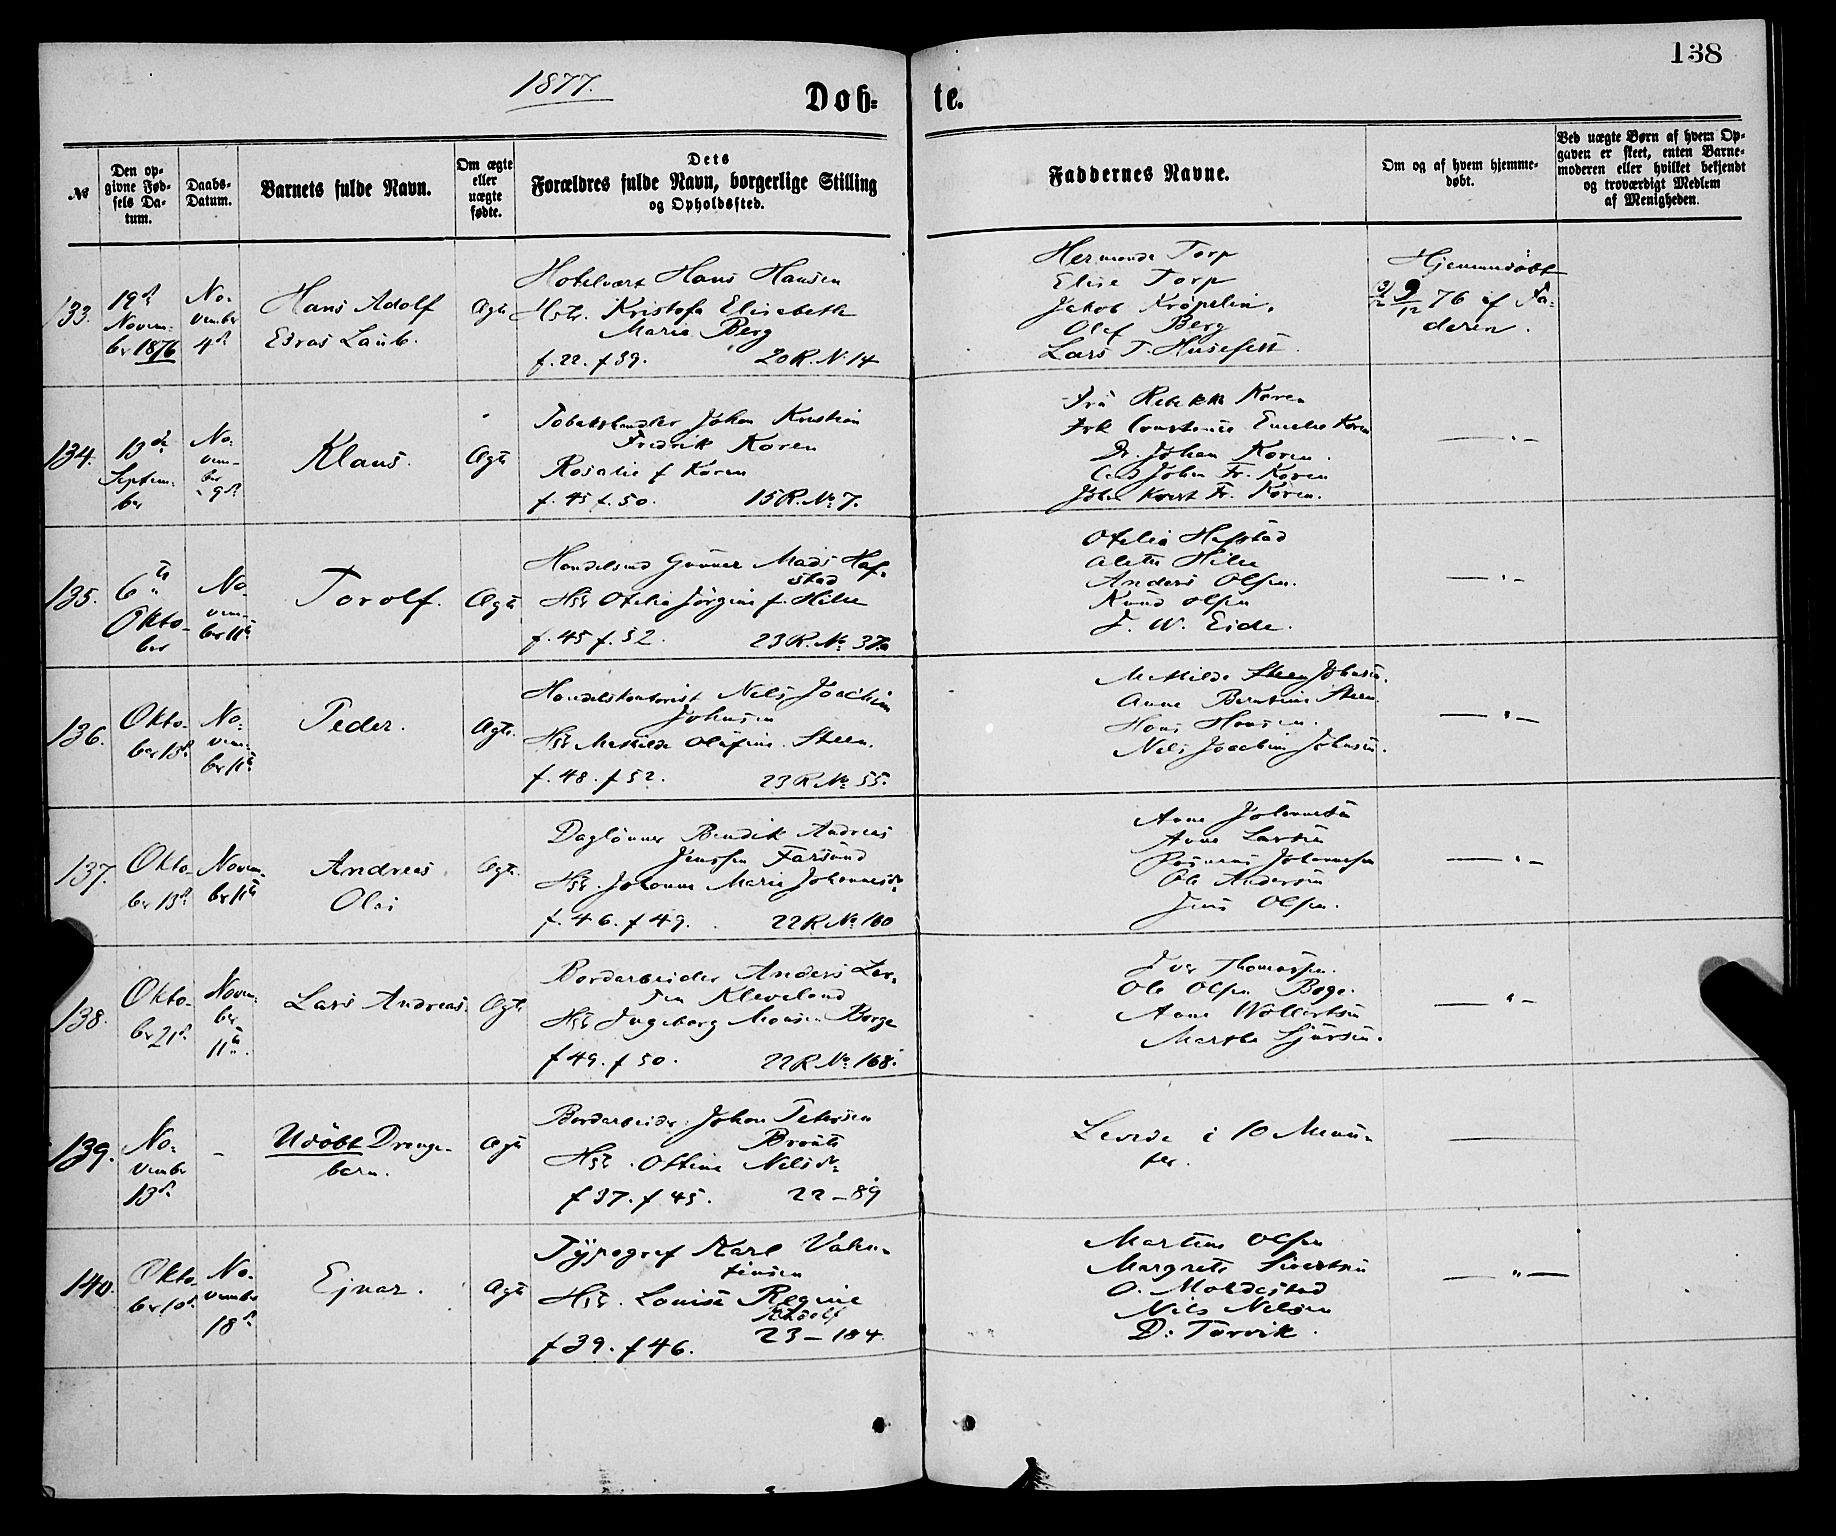 138
1877.
Døb-
te.
№
Den op-
givne Fød-
sels Da-
tum.
Daabs-
Datum.
Barnets fulde Navn.
Om ægte
eller
uægte
fødte.
Dets
Forældres fulde Navn, borgerlige Stilling
og Opholdssted.
Faddernes Navne.
Om og af hvem hjemme-
døbt.
Ved uægte Børn af hvem Op-
gaven er skeet, enten Barne-
moderen eller hvilket bekjendt
og troværdigt Medlem
af Menigheden.
133.
19d
Novem-
ber 1876
No-
vember
4d
Hans Adolf
Esras Laub.
Ægte
Hotelvært Hans Hansen
Hstr. Kristofa Elisabeth
Marie Berg
f. 22. f 39. 20 R. N. 14
Torp
Elise Torp
Jakob Krøpelin.
Olaf Berg
Lars T. Husefest
Hjemmedøbt
9/12 76 af Fa-
deren.
134.
13de
Septem-
ber
No-
vem-
ber
9d
Klaus.
Ægte
Johan Kristian
Fredrik Koren
Rosalie f Koren
f. 45 f. 50. 15 R. No 7.
Fru Rebekka Koren
Frk Constance Emelie Koren
Dr. Johan Koren.
Johan Fr. Koren
Fr. Koren.
135.
6te
Okto-
ber
No-
vem-
ber 11te
Torolf.
Ægte
Handelsmd Gunner Mads Haf-
stad
Hst Otelia Jørgine f. Hille
f. 45 f. 52. 23 R. No 37a
Otelia Hafstad
Alette Hille
Anders Olsen.
Knud Olsen
J. W. Eide.
136.
Okto-
ber 13d
No-
vem-
ber 11te
Peder.
Ægte.
Nels Joachim
Johnsen
Hst Mathilde Olufine Steen.
f. 48. f 52. 23 R No 55.
Mathilde Steen Johnsen.
Anne Berntine Steen.
Hans Hansen.
Nels Joachim Johnsen.
137.
Okto-
ber 13d
Novem-
ber 11te
Andreas
Olai
Ægte.
Daglønner Bendik Andreas
Jenssen Farsund
Hst. Johanne Marie Johannesdr
f. 46. f 49. 22 R No 160
Anne Johannesen
Anne Larsen
Rasmus Johannesen
Ole Andersen
Jens Olsen.
138.
Okto-
ber 21d
Novem-
ber
11te
Lars Andreas.
Ægte
Bordarbeider Anders Lar-
sen Kleveland
Hst Ingeborg Monsen Borge
f 49. f 50. 22 R No 168.
Iver Thomassen.
Ole Olsen Boge.
Anne Wollertsen
Marthe Sjursen.
139.
No-
vember
13d
-
Udøbt Drenge-
barn.
Ægte
Bordarbeider Johan Petersen
Hst. Ottine Nelsdr
f 37. f 45. 22 - 89
Levede i 10 Minu-
ter.
140.
Okto-
ber 10d
No-
vember
18d
Ejnar.
Ægte
Typograf Karl Valen-
tinsen
Hst. Louise Regine
Rudolf
f 39. f 46. 23 - 184
Martin Olsen
Margrete Sivertsen
O. Moldestad
Nils Nelsen
D. Torvik.